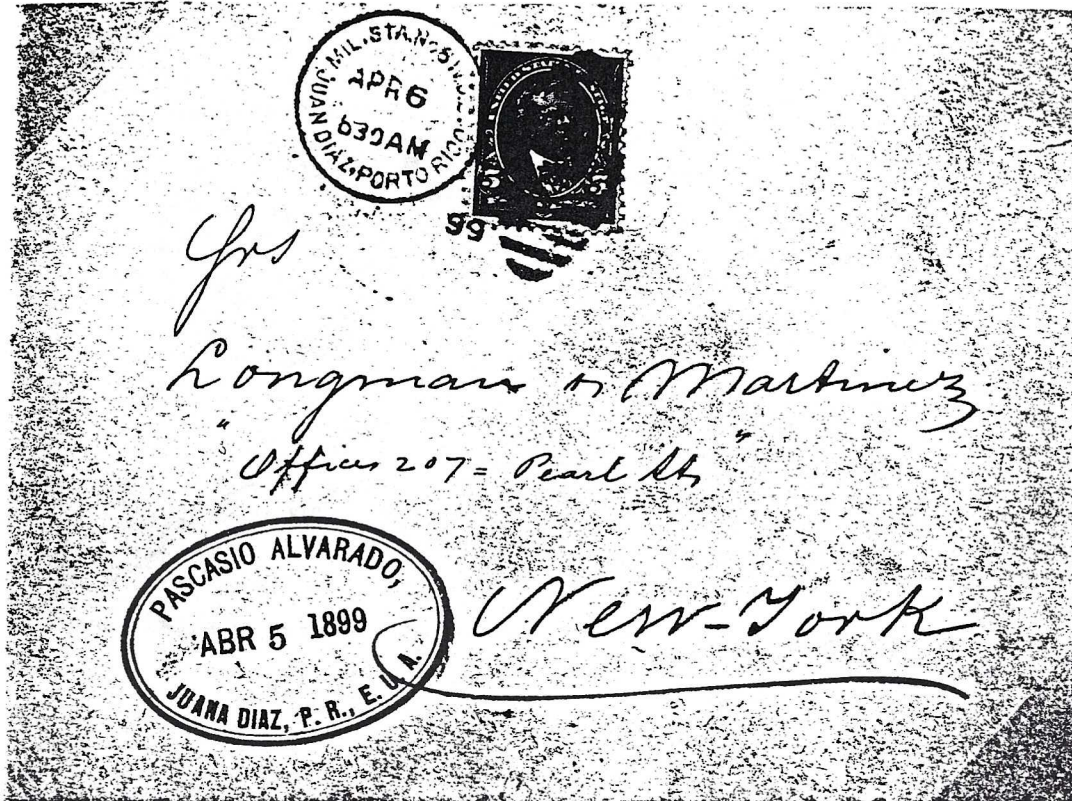 MIL. STA. No. 5
APR 6
630AM
JUAN DIAZ, PORTO RICO
5 5
99
Srs
Longman & Martinez
"Offices 207= Pearl St"
PASCASIO ALVARADO,
ABR 5 1899
JUANA DIAZ, P. R., E. U. A.
New-York